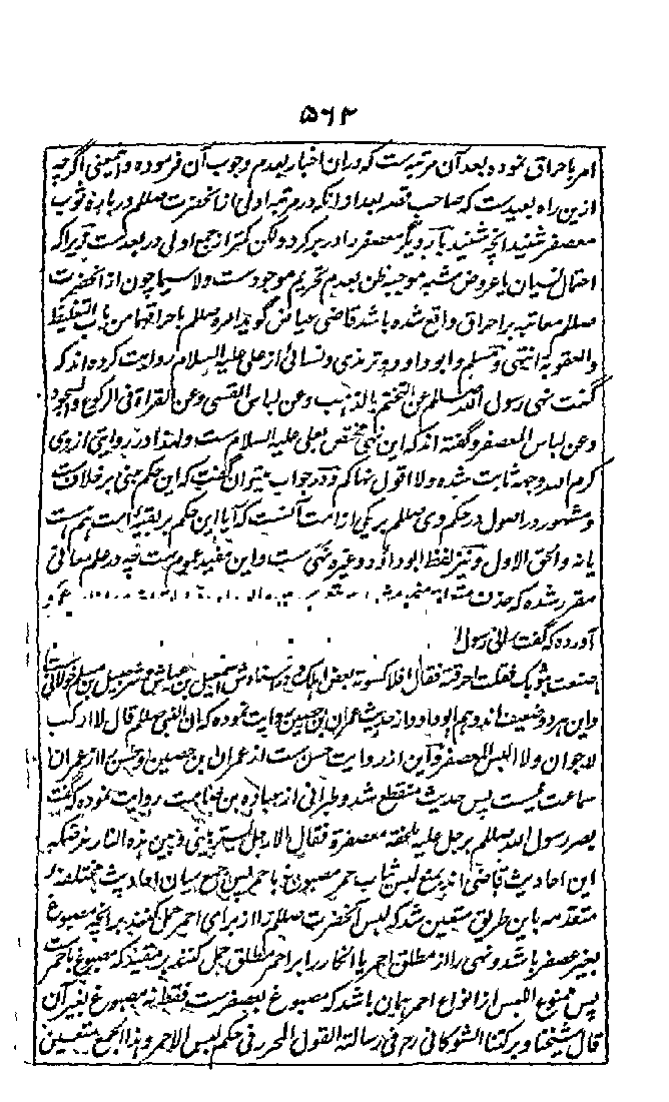 ۵۶۲
امر باحراق نموده بعد آن مرتبه ست که دران اخبار بعدم وجوب آن فرموده و اینمعنی اگرچه
ازین راه بعید ست که صاحب قصه بعد از آنکه در مرتبه اولی از آنحضرت صلعم درباره ثوب
معصفر شنید آنچه شنید بار دیگر معصفر را در بر کرد ولکن کمتر از جمع اولی در بعد ست زیراکه
احتمال نسیان یا عروض شبه موجبه ظن بعدم تحریم موجود ست ولا سیما چون از آنحضرت
صلعم معاتبه بر احراق واقع شده باشد قاضی عیاض گوید امره صلعم باحراقها من باب التغلیظ
والعقوبة انتهی و مسلم و ابوداود و ترمذی و نسائی از علی علیه السلام روایت کرده اند که
گفت نهی رسول الله صلعم عن التختم بالذهب وعن لباس القسی وعن القراءة فی الرکوع والسجود
وعن لباس المعصفر و گفته اند که این نهی مختص بعلی علیه السلام ست و لهذا در روایتی از وی
کرم الله وجهه ثابت شده ولا اقول نهاکم و در جواب میتوان گفت که این حکم مبنی بر خلاف ست
مشهور در اصول در حکم وی صلعم بر یکی از امت آنست که آیا این حکم بر بقیه امت هم هست
یا نه والحق الاول و نیز لفظ ابوداود و غیره نهی ست و این مفید عموم ست چه در علم معانی
مقرر شده که حذف
آورده که گفت رسول
صنعت بثوبک فقلت احرقته فقال افلا کسوته بعض اهلک و در اسنادش اسمعیل بن عیاش و شرحبیل بن مسلم خولانی ست
و این هر دو ضعیف اند و هم ابوداود از حدیث عمران بن حصین روایت نموده که ان النبی صلعم قال لا ارکب
الارجوان ولا البس المعصفر و این از روایت حسن ست از عمران بن حصین و حسن را از عمران
سماعت نیست پس حدیث منقطع شد و طبرانی از عباده بن صامت روایت نموده که گفت
بصر رسول الله صلعم برجل علیه ملحفة معصفرة فقال الا رجل یستر بینی وبین هذه النار غرضکه
این احادیث قاضی اند بمنع لبس ثیاب حمر مصبوغ باحمر پس جمع میان احادیث مختلفه
متقدمه باین طریق متعین شد که لبس آنحضرت صلعم را از برای احمر حمل کنند بر آنچه مصبوغ
بغیر عصفر باشد و نهی را از مطلق احمر یا انکار را بر احمر مطلق حمل کنند بر مقید که مصبوغ باحمر ست
پس ممنوع اللبس از انواع احمر همان باشد که مصبوغ بعصفر ست فقط نه مصبوغ بغیر آن
قال شیخنا وبرکتنا الشوکانی رح فی رسالته القول المحرر فی حکم لبس الاحمر وهذا الجمع متعین